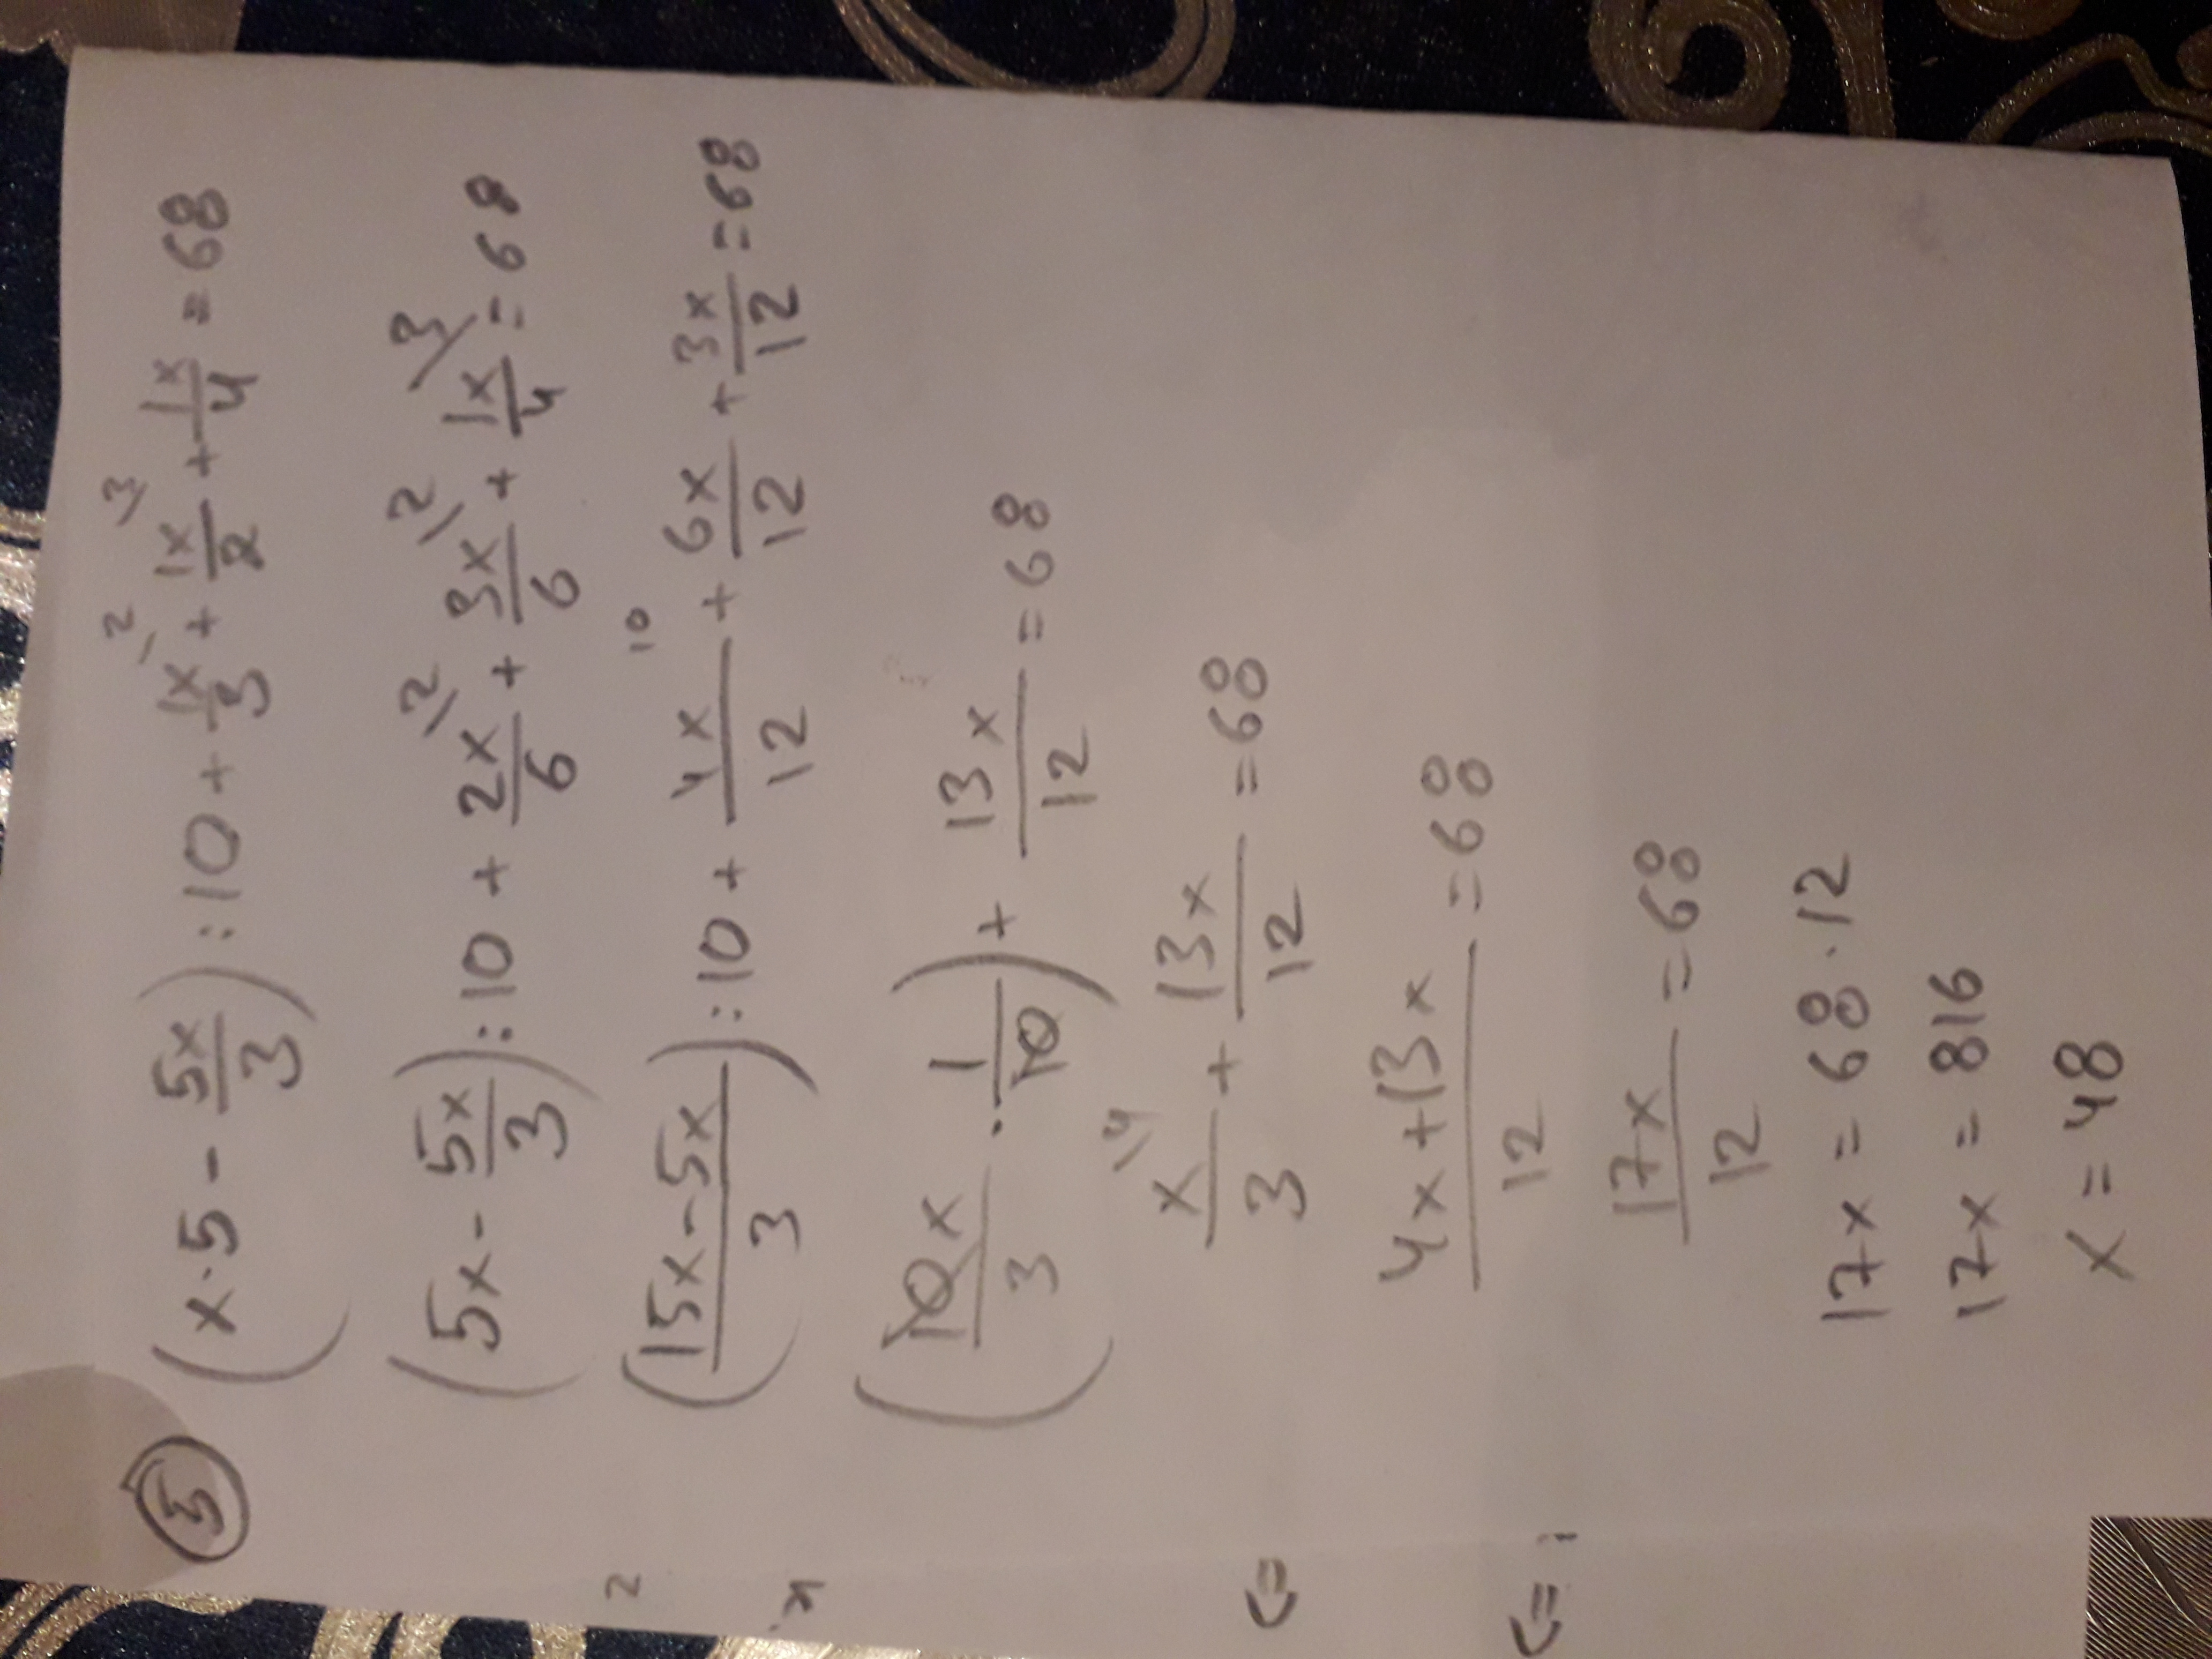 ③ (x·5 - 5x/3) : 10 + 1x/3 \2 + 1x/2 \3 + 1x/4 = 68
(5x - 5x/3) : 10 + 2x/6 \2 + 3x/6 \2 + 1x/4 \3 = 68
(15x - 5x / 3) : 10 + 4x/12 + 6x/12 + 3x/12 = 68
10
(10x/3 · 1/10) + 13x/12 = 68
x/3 \4 + 13x/12 = 68
4x + 13x / 12 = 68
17x/12 = 68
17x = 68·12
17x = 816
x = 48